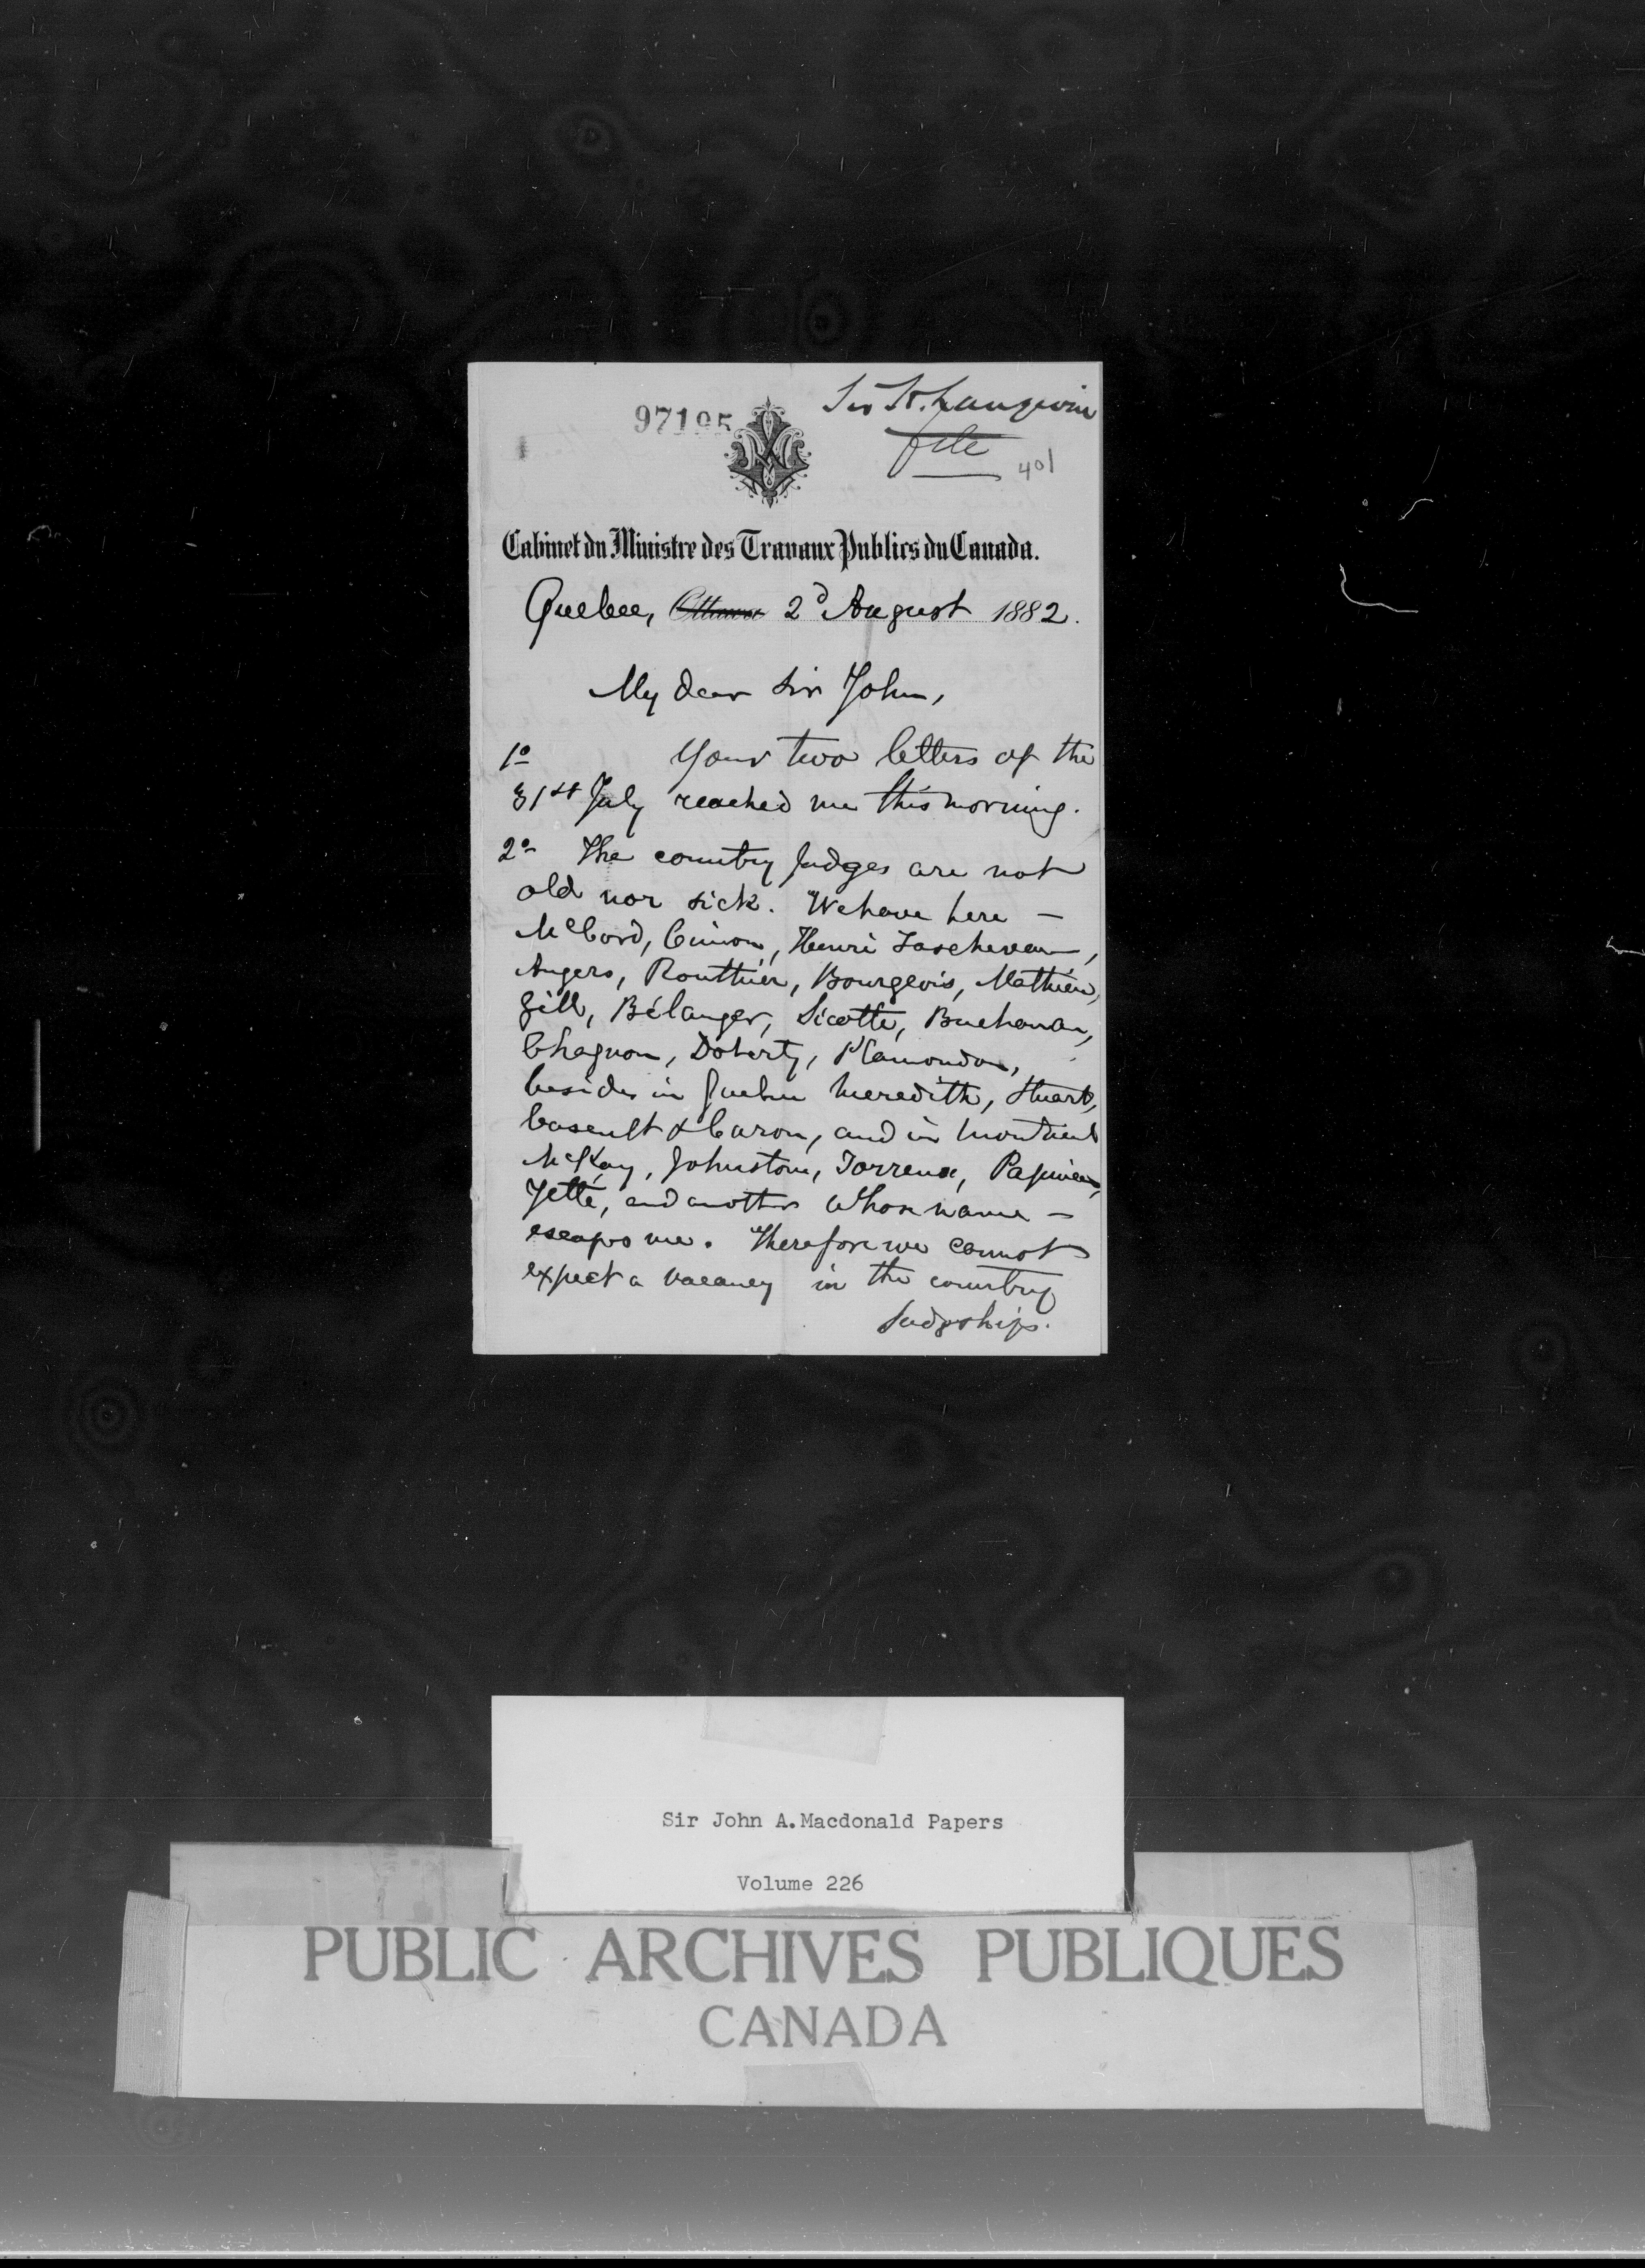 97195
Sir H. Langevin
file
401
Cabinet du Ministre des Travaux Publics du Canada.
Quebec, Ottawa 2d August 1882.
My dear Sir John,
1o Your two letters of the
31st July reached me this morning.
2o The country Judges are not
old nor sick. We have here –
McCord, Cimon, Henri Taschereau,
Angers, Routhier, Bourgeois, Mathieu,
Gill, Bélanger, Sicotte, Buchanan,
Chagnon, Doherty, Plamondon,
besides in Quebec Meredith, Stuart,
Casault & Caron, and in Montreal
McKay, Johnston, Torrance, Papineau,
Jetté, and another whose name –
escapes me. Therefore we cannot
expect a vacancy in the country
Judgeships.
Sir John A. Macdonald Papers
Volume 226
PUBLIC ARCHIVES PUBLIQUES
CANADA